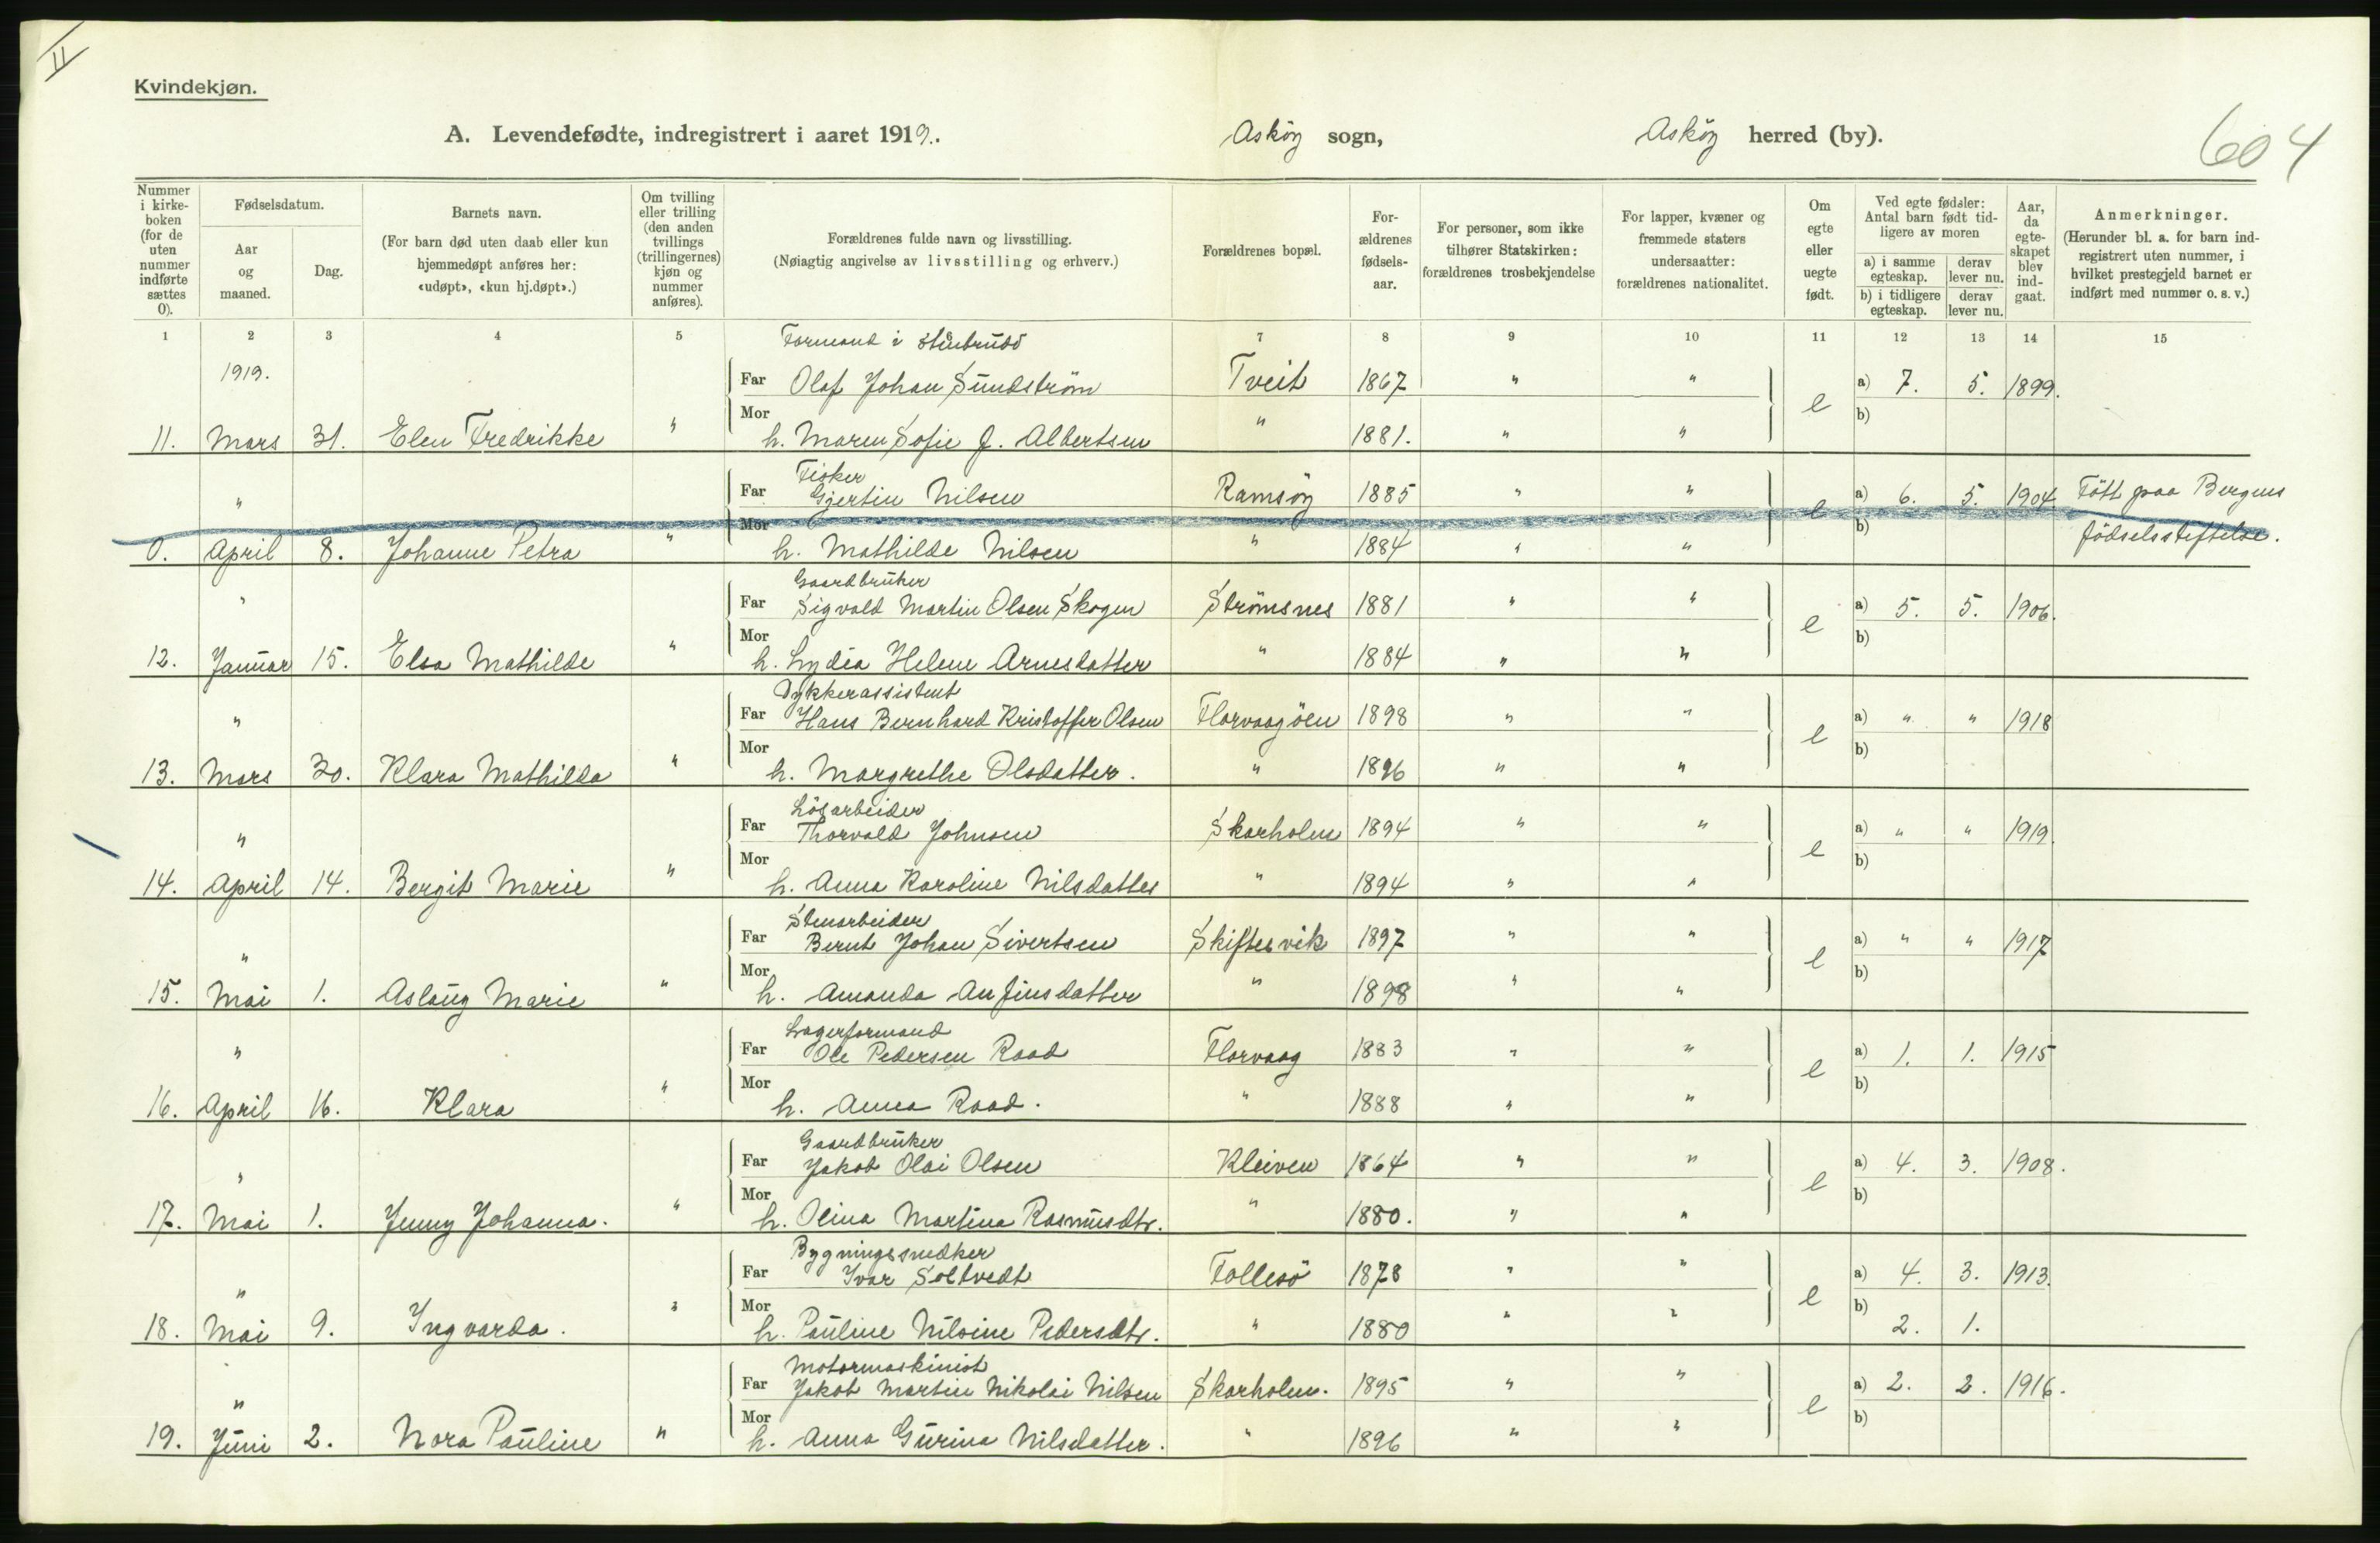 II
Kvindekjøn.
A. Levendefødte, indregistrert i aaret 1919. Askøy sogn, Askøy herred (by).
604
Nummer i kirke-boken (for de uten nummer indførte sættes 0).
Fødselsdatum.
Aar og maaned.
Dag.
Barnets navn.
(For barn død uten daab eller kun hjemmedøpt anføres her: «udøpt», «kun hj.døpt».)
Om tvilling eller trilling (den anden tvillings (trillingernes) kjøn og nummer anføres).
Forældrenes fulde navn og livsstilling.
(Nøiagtig angivelse av livsstilling og erhverv.)
Forældrenes bopæl.
For-ældrenes fødsels-aar.
For personer, som ikke tilhører Statskirken: forældrenes trosbekjendelse
For lapper, kvæner og fremmede staters undersaatter: forældrenes nationalitet.
Om egte eller uegte født.
Ved egte fødsler: Antal barn født tid-ligere av moren
a) i samme egteskap. derav lever nu.
b) i tidligere egteskap. derav lever nu.
Aar, da egte-skapet blev ind-gaat.
Anmerkninger.
(Herunder bl. a. for barn ind-registrert uten nummer, i hvilket prestegjeld barnet er indført med nummer o. s. v.)
1 2 3 4 5 7 8 9 10 11 12 13 14 15
Formand i stenbrudd
1919. Far Olaf Johan Sundström Tveit 1867 " " e a) 7. 5. 1899.
11. Mars 31. Elen Fredrikke " Mor h. Maren Sofie J. Albertsen " 1881. " " b)
Fisker
" Far Gjertin Nilsen Ramsöy 1885 " " e a) 6. 5. 1904 Födt paa Bergens
0. April 8. Johanne Petra " Mor h. Mathilde Nilsen " 1884 " " b) födselsstiftelse.
Gaardbruker
" Far Sigvald Martin Olsen Skogen Strömsnes 1881 " " e a) 5. 5. 1906.
12. Januar 15. Elsa Mathilde " Mor h. Lydia Helene Arnesdatter " 1884 " " b)
Dykkerassistent
" Far Hans Bernhard Kristoffer Olsen Florvaagöen 1898 " " e a) " " 1918
13. Mars 30. Klara Mathilda " Mor h. Margrethe Olsdatter. " 1896 " " b)
Lösarbeider
" Far Thorvald Johnsen Skarholm 1894 " " e a) " " 1919.
14. April 14. Bergit Marie " Mor h. Anna Karoline Nilsdatter " 1894 " " b)
Stenarbeider
" Far Bernt Johan Sivertsen Skiftesvik 1897 " " e a) " " 1917
15. Mai 1. Aslaug Marie " Mor h. Amanda Anfinsdatter " 1898 " " b)
Lagerformand
" Far Ole Pedersen Raad Florvaag 1883 " " e a) 1. 1. 1915
16. April 16. Klara " Mor h. Anna Raad. " 1888 " " b)
Gaardbruker
" Far Jakob Olai Olsen Kleiven 1864 " " e a) 4. 3. 1908.
17. Mai 1. Jenny Johanna. " Mor h. Olina Martina Rasmusdtr. " 1880. " " b)
Bygningssnedker
" Far Ivar Soltvedt Follesö 1878 " " e a) 4. 3. 1913.
18. Mai 9. Ingvarda. " Mor h. Pauline Nilsine Pedersdtr. " 1880 " " b) 2. 1.
Motormaskinist
" Far Jakob Martin Nikolai Nilsen Skarholm. 1895 " " e a) 2. 2. 1916.
19. Juni 2. Nora Pauline " Mor h. Anna Gurina Nilsdatter. " 1896 " " b)